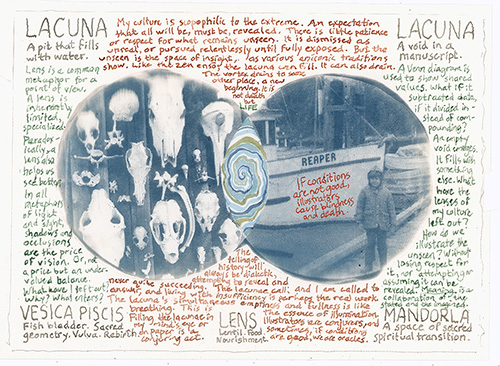 LACUNA
A pit that fills
with water.
Lens is a common
metaphor for a
point of view.
A lens is
inherently
limited,
specialized.
Paradox-
ically, a
lens also
helps us
see better.
In all
metaphors
of light
and sight,
shadows and
occlusions
are the price
of vision. Or, not
a price but an under-
valued balance.
What have I left out?
Why? What enters?
VESICA PISCIS
Fish bladder. Sacred
geometry. Vulva. Rebirth
My culture is scopophilic to the extreme. An expectation
that all will be, must be, revealed. There is little patience
or respect for what remains unseen. It is dismissed as
unreal, or pursued relentlessly until fully exposed. But the
unseen is the space of insight, as various aniconic traditions
show. Like the zen enso, the lacuna can fill. It can also drain.
The vortex drains to some
other place, a new
beginning. It is
not death
but
LIFE
REAPER
If conditions
are not good,
illustrators
cause blindness
and death.
The
telling of
history will
always be dialectic,
attempting to reveal and
never quite succeeding. The lacunae call, and I am called to
answer, and living with insufficiency is perhaps the real work
The lacuna's simultaneous emptiness and fullness is like
breathing. This is
Filling the lacunae in
my mind's eye or
on paper is a
conjuring act.
LENS
Lentil. Food
Nourishment.
The essence of illumination
illustrators are conjurers, and
sometimes, if conditions
are good, we are oracles.
LACUNA
A void in a
manuscript.
A Venn diagram is
used to show shared
values. What if it
subtracted data,
if it divided in-
stead of com-
pounding?
An empty
void emerges.
It fills with
something
else. What
have the
lenses of
my culture
left out?
How do we
illustrate the
unseen? Without
losing respect for
it, nor attempting or
assuming it can be
revealed. Meaning is a
collaboration of the
and the imagined.
MANDORLA
A space of sacred
spiritual transition.